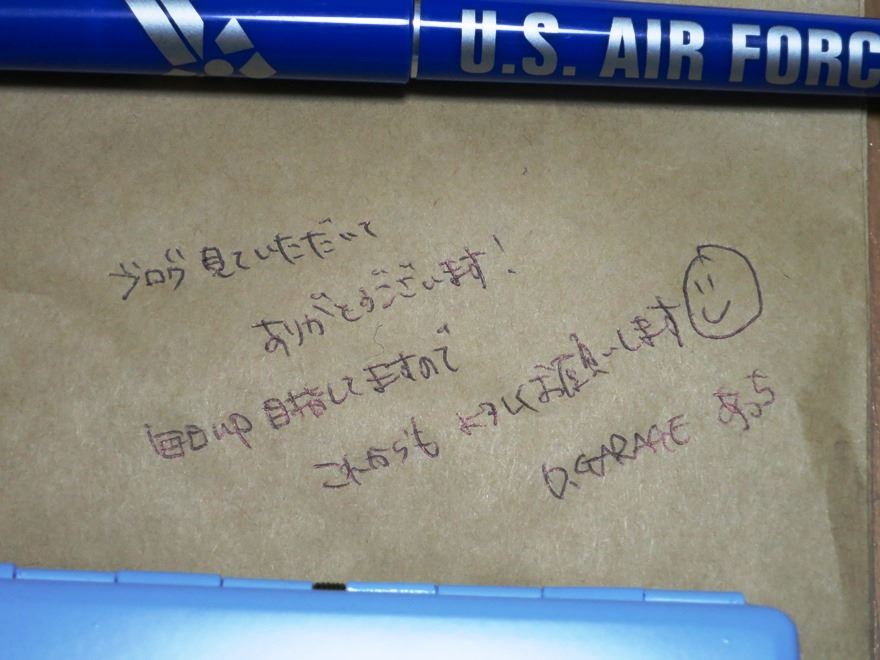 U.S. AIR FORC
ブログ見ていただいて
ありがとうございます!
毎日up目指してますので
これからもよろしくお願いします
D.GARAGE